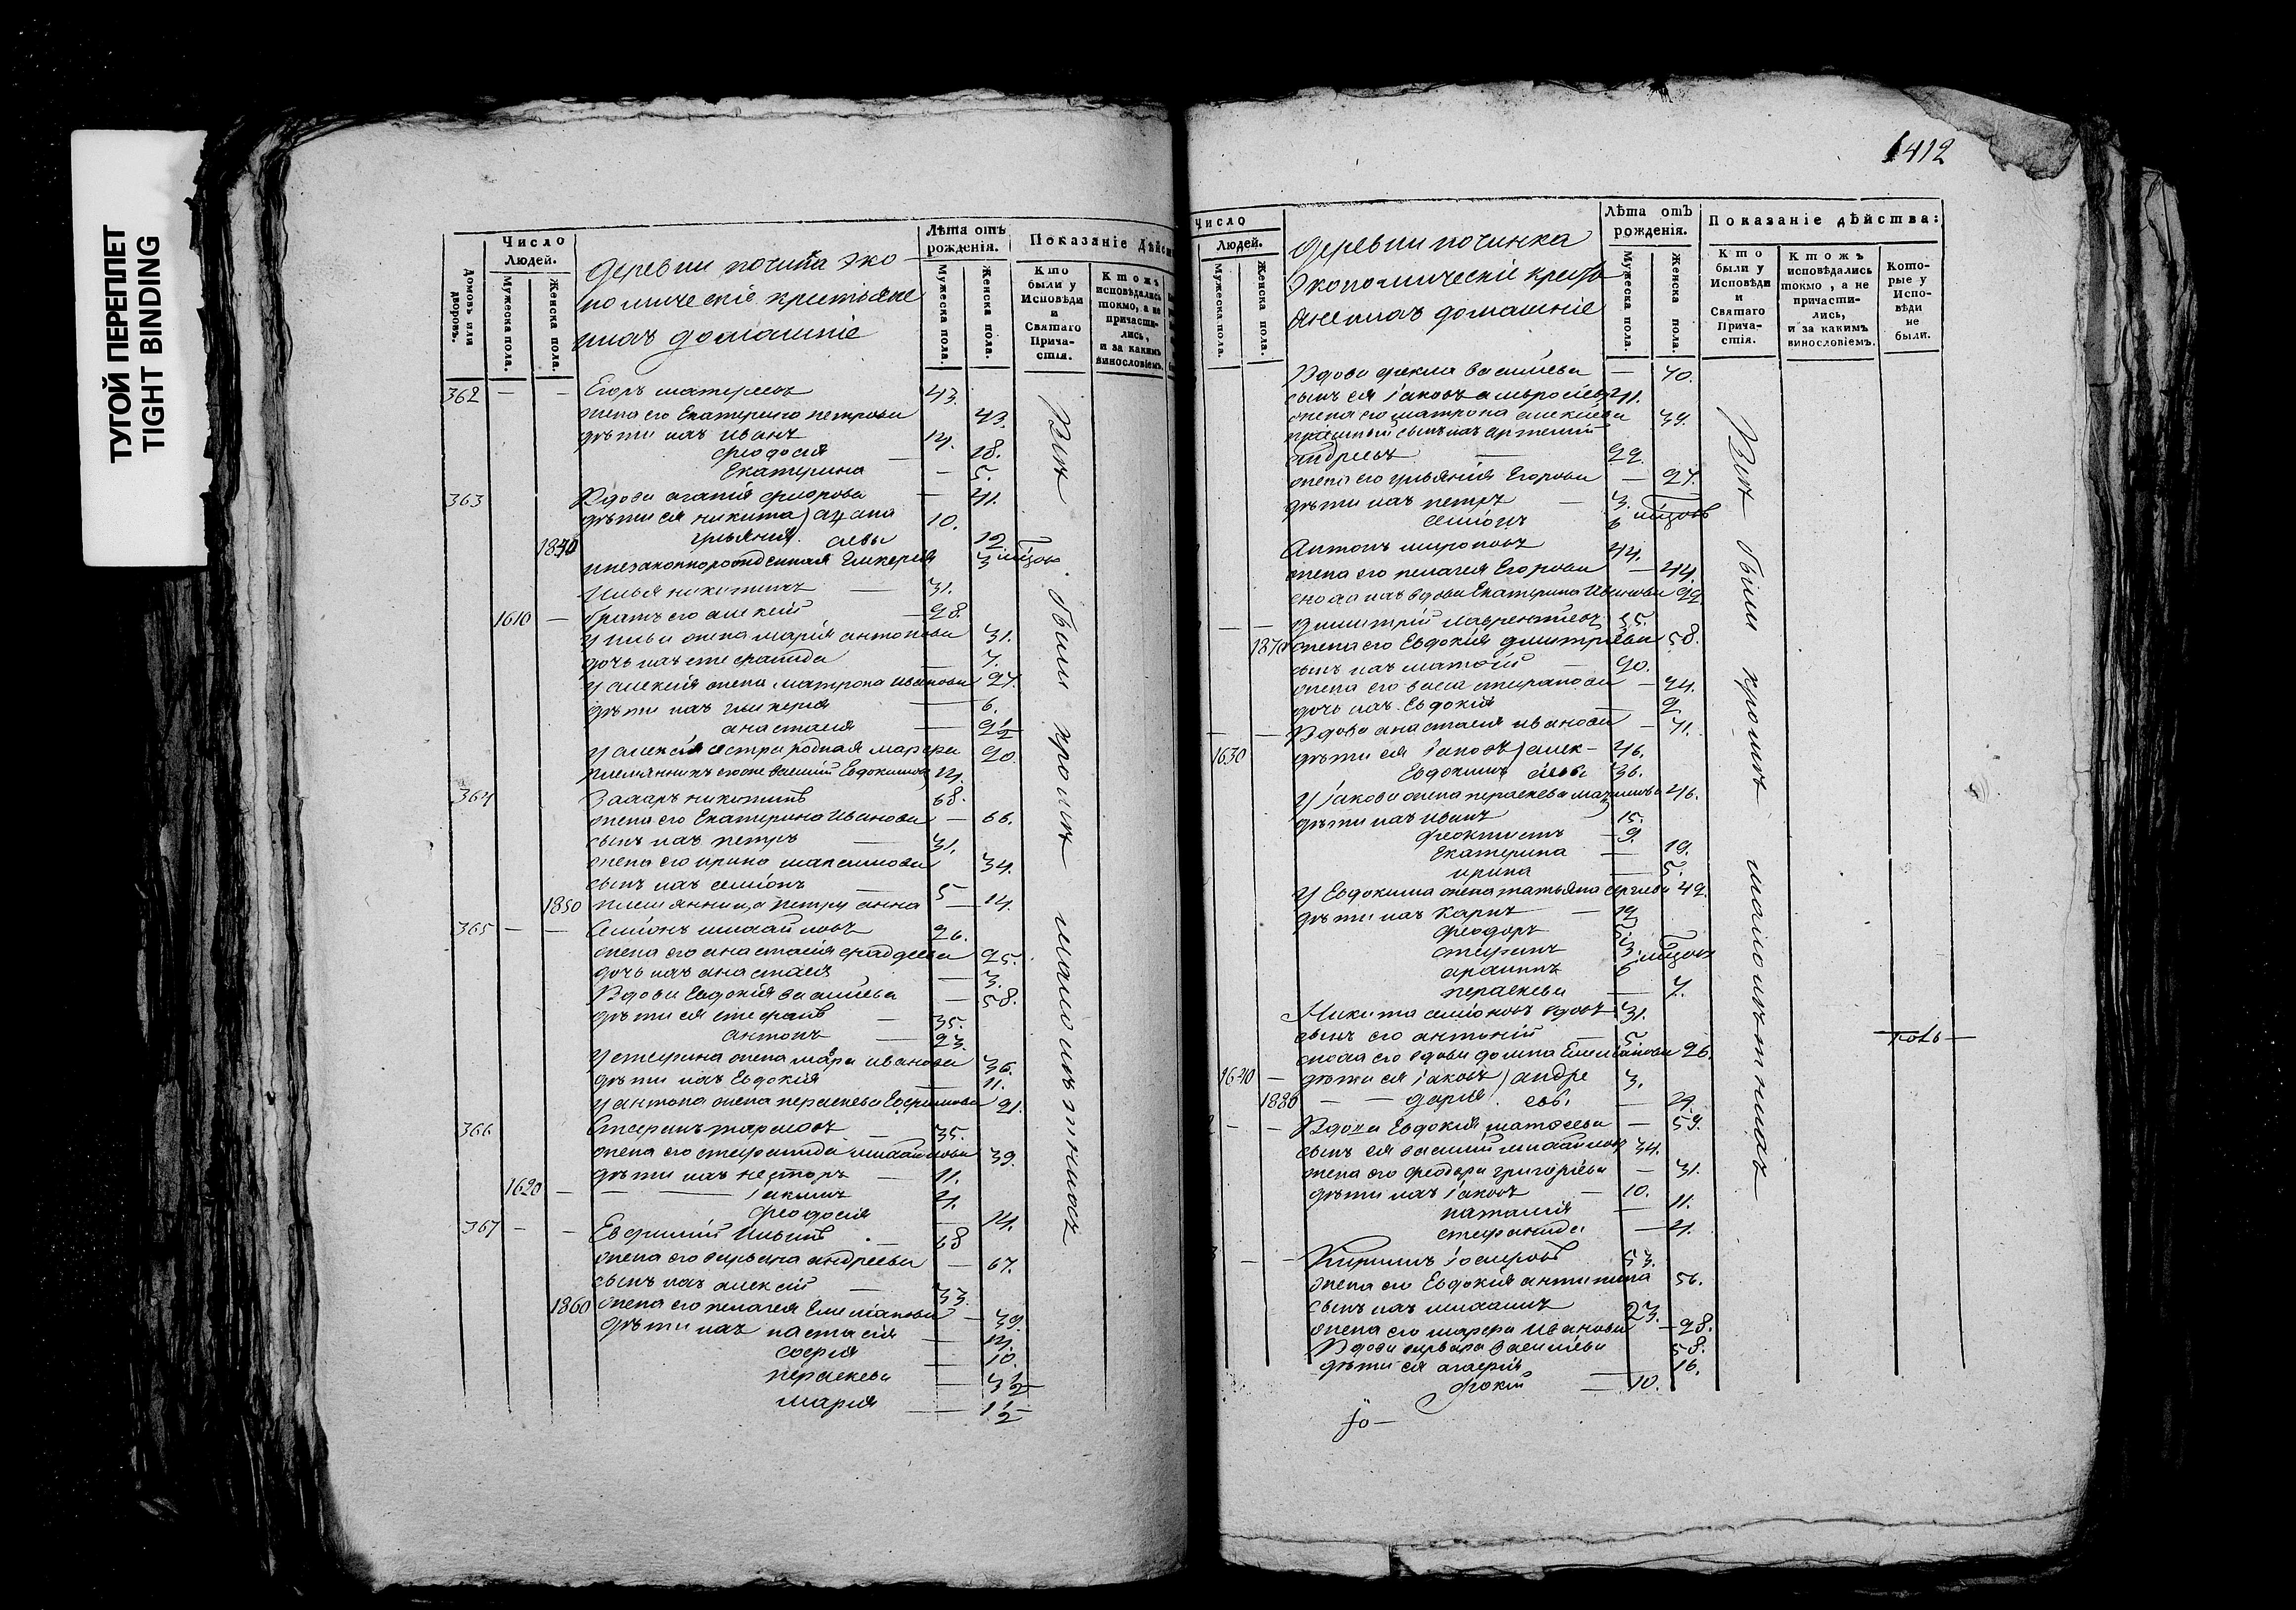 ТУГОЙ ПЕРЕПЛЕТ
TIGHT BINDING
Домовъ или дворовъ.
Число Людей.
Мужеска пола.
Женска пола.
деревни почин&а эко
номическіе крестьяне
ихъ домашніе
Лѣта отъ рожденія.
Мужеска пола.
Женска пола.
Показаніе Дѣйс
Кто были у Исповѣди и Святаго Прича-стія.
Ктожъ исповѣдались токмо, а не причасти-лись, и за какимъ винословіемъ.
362 — — Егоръ матвреевъ 43.
жена его Екатерина петрова 43.
дѣти ихъ иванъ 14.
феодосія — 18.
Екатерина — 5.
363 Вдова агапія феорова — 41.
дѣти ея никита 10.
1840 ульянія. 12
незаконнорожденная Гликерія 3
Илья никитинъ — 31.
1610 — братъ его алексій — 28.
у ильи жена марія антонова 31.
дочь ихъ степанида — 7.
у алексія жена матрона иванова 27.
дѣти ихъ гликерія — 6.
анастасія — 2½
у алексія сестра родная марфа 20.
племянникъ его же василій Евдокимовъ 14.
364 Захаръ никитинъ 68.
жена его Екатерина Иванова — 66.
сынъ ихъ петръ — 31.
жена его ирина максимова 34.
сынъ ихъ симіонъ — 5
1850 племянница петру анна — 14.
365 — — Симіонъ михайловъ 26.
жена его анастасія фаддеева 25.
дочь ихъ анастасія — 3.
Вдова Евдокія васильева — 58.
дѣти ея стефанъ — 35.
антонъ — 23.
у стефана жена мавра иванова 36.
дѣти ихъ Евдокія — 11.
у антона жена параскева Ефимова 21.
366 Стефанъ тарасовъ — 35.
жена его стефанида михайлова 39.
дѣти ихъ несторъ — 11.
1620 — іакимъ 4.
феодосія — 14.
367 — — Евфимій Ильинъ — 68
жена его варвара андреева — 67.
сынъ ихъ алексій — 33.
1860 жена его пелагея Емеліанова — 39.
дѣти ихъ настасія — 14.
софія — 10.
параскева — 3½
марія — 1½
Всѣ были кромѣ малолѣтнихъ
1412
Число Людей.
Мужеска пола.
Женска пола.
деревни починка
Экономическіе кресть
яне ихъ домашніе
Лѣта отъ рожденія.
Мужеска пола.
Женска пола.
Показаніе дѣйства:
Кто были у Исповѣди и Святаго Прича-стія.
Ктожъ исповѣдались токмо, а не причасти-лись, и за какимъ винословіемъ.
Кото-рые у Испо-вѣди не были.
Вдова фекла васильева — 70.
сынъ ея іаковъ амвросіевъ 41.
жена его матрона алексіева 39.
пріемный сынъ ихъ артемій
андреевъ — 22.
жена его ульянія Егорова — 27.
дѣти ихъ петръ — 3.
симіонъ 6
Антонъ мироновъ 44.
жена его пелагея Егорова — 44.
сноха ихъ вдова Екатерина Иванова 22.
— — димитрій лаврентіевъ 55.
1870 жена его Евдокія димитріева 58.
сынъ ихъ матѳій — 20.
жена его васса стефанова — 24.
дочь ихъ Евдокія — 2.
— — Вдова анастасія иванова — 71.
1630 дѣти ея іаковъ 46.
Евдокимъ 36.
У іакова жена параскева максимова 46.
дѣти ихъ иванъ 15.
феоктистъ — 9.
Екатерина — 19.
ирина — 5.
У Евдокима жена татьяна сергиева 42.
дѣти ихъ Карпъ — 12
феодоръ
стефанъ 3.
архипъ 6
параскева — 7.
Никита симіоновъ вдовъ 31.
сынъ его антоній — 5
сноха его вдова домна Емеліанова 26.
1640 — дѣти ея іаковъ 3.
1880 — — дарія. — 4.
— — Вдова Евдокія матѳеева — 59.
сынъ ея василій михайловъ 34.
жена его феодора григоріева — 31.
дѣти ихъ іаковъ — 10.
наталія — 11.
стефанида — 4.
— — Кирилъ іосифовъ 53.
жена его Евдокія антипина 56.
сынъ ихъ михаилъ 23.
жена его марфа Иванова — 28.
Вдова варвара васильева 58.
дѣти ея агафія — 16.
фокій — 10.
Всѣ были кромѣ малолѣтнихъ